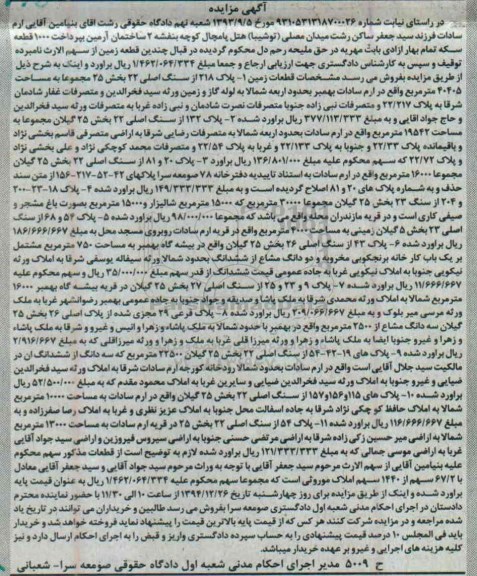 آگهی مزایده
در راستای نیابت شماره ۹۳۱۰۵۳۱۳۱۸۷۰۰۰۲۶ مورخ ۱۳۹۳/۹/۵ شعبه نهم دادگاه حقوقی رشت آقای بنیامین آقایی ارم
سادات فرزند سید جعفر ساکن رشت میدان مصلی (توشیبا) هتل پامچال کوچه بنفشه ۲ ساختمان آرمین بپرداخت ۱۰۰۰ قطعه
سکه تمام بهار آزادی بابت مهریه در حق ملیحه رحم دل محکوم گردیده در قبال چندین قطعه زمین از سهم الارث نامبرده
توقیف و سپس به کارشناس دادگستری جهت ارزیابی ارجاع و جمعا مبلغ ۱/۴۶۲/۰۶۴/۳۳۴ ریال برآورد و اینک به شرح ذیل
از طریق مزایده بفروش می رسد مشخصات قطعات زمین ۱- پلاک ۲۱۸ از سنگ اصلی ۲۲ بخش ۲۵ مجموعا به مساحت
۴۰۴۰۵ مترمربع واقع در ارم سادات بهمبر بحدود اربعه شمالا به لوله گاز و زمین ورثه سید فخرالدین و متصرفات غفار شادمان
شرقا به پلاک ۲۲/۲۱۷ و متصرفات نبی زاده جنوبا متصرفات نصرت شادمان و نبی زاده غربا به متصرفات ورثه سید فخرالدین
و حاج جواد آقایی و به مبلغ ۳۷۷/۱۱۳/۳۳۳ ریال برآورد شده ۲- پلاک ۱۳۲ از سنگ اصلی ۲۲ بخش ۲۵ گیلان مجموعا به
مساحت ۱۹۵۴۲ مترمربع واقع در ارم سادات بحدود اربعه شمالا به متصرفات رضایی شرقا به اراضی متصرفی قاسم بخشی نژاد
و باقیمانده پلاک ۲۲/۳۳ و جنوبا به پلاک ۲۲/۱۳۳ و غربا به پلاک ۲۲/۵۴ و متصرفات محمد کوچکی نژاد و علی بخشی نژاد
و پلاک ۲۲/۷۲ که سهم محکوم علیه مبلغ ۱۳۶/۸۰۱/۰۰۰ ریال برآورد ۳- پلاک ۲۰ و ۸۱ از سنگ اصلی ۲۲ بخش ۲۵ گیلان
مجموعا ۱۶۰۰۰ مترمربع واقع در ارم سادات به استناد تاییدیه دفترخانه ۷۸ صومعه سرا پلاکهای ۴۲-۵۲-۲۱۷-۱۵۶ از متن سند
حذف و به شماره پلاک های ۲۰ و ۸۱ اصلاح گردیده است و به مبلغ ۱۴۹/۳۳۳/۳۳۳ ریال برآورد شده ۴- پلاک ۱۸-۲۳-۲۰۰
و ۲۰۴ از سنگ ۲۳ بخش ۲۵ گیلان مجموعا ۳۰۰۰۰ مترمربع که ۱۵۰۰۰ مترمربع شالیزار و ۱۵۰۰۰ مترمربع بصورت باغ مشجر و
صیفی کاری است و در قریه مازندران محله واقع می باشد که مجموعا ۹۸/۰۰۰/۰۰۰ ریال برآورد شده ۵- پلاک ۵۴ و ۶۸ از سنگ
اصلی ۲۲ بخش ۵ گیلان زمینی به مساحت ۴۰۰۰ مترمربع واقع در قریه ارم سادات روبروی مسجد محل به مبلغ ۱۸۶/۶۶۶/۶۶۷
ریال برآورد شده ۶- پلاک ۴۳ از سنگ اصلی ۲۶ بخش ۲۵ گیلان واقع در بیشه گاه بهمبر به مساحت ۷۵۰ مترمربع مشتمل
بر یک باب کار خانه برنجکوبی مخروبه و دو دانگ مشاع از ششدانگ بحدود شمالا ورثه سیفاله یوسفی شرقا به املاک ورثه
نیکویی جنوبا به املاک نیکویی غربا به جاده عمومی قیمت ششدانگ از قدر سهم مبلغ ۳۵/۰۰۰/۰۰۰ ریال و سهم محکوم علیه
۱۱/۶۶۶/۶۶۷ ریال برآورد شده ۷- پلاک ۹ و ۲۳ و ۲۵ از سنگ اصلی ۲۷ بخش ۲۵ گیلان در قریه بیشه گاه بهمبر ۱۶۰۰۰
مترمربع شمالا به املاک ورثه محمدی شرقا به ملک پاشاه و صدیقه و جواد جنوبا به جاده عمومی بهمبر رضوانشهر غربا به ملک
ورثه مرسی میر بلوک و به مبلغ ۳۰۹/۰۶۶/۶۶۷ ریال برآورد شده ۸- پلاک فرعی ۲۹ مجزی شده از پلاک اصلی ۲۶ بخش ۲۵
گیلان سه دانگ مشاع از ۲۵۰۰ مترمربع واقع در بهمبر با حدود شمالا به ملک پاشاه و زهرا و انیس و غیرو و شرقا به ملک پاشاه
و زهرا و غیرو جنوبا ایضا به ملک پاشاه و زهرا و ورثه میرزا قلی غربا به ملک و زهرا و ورثه میرزاقلی که به مبلغ ۲/۹۱۶/۶۶۷
ریال برآورد شده ۹- پلاک های ۱۹-۴۳-۵۴ از سنگ اصلی ۲۲ بخش ۲۵ گیلان ۲۲۵۰۰ مترمربع که سه دانگ از ششدانگ ان در
مالکیت سید جلال آقایی است واقع در ارم سادات بحدود شمالا رودخانه کورجه ارم سادات شرقا به املاک ورثه سید فخرالدین
ضیایی و غیرو جنوبا به املاک ورثه سید فخرالدین ضیایی و سایرین غربا به املاک محمود مقدم که به مبلغ ۵۲/۵۰۰/۰۰۰ ریال
برآورد شده ۱۰- پلاک های ۱۱۵ و ۱۵۶ و ۱۵۷ از سنگ اصلی ۲۲ بخش ۲۵ گیلان واقع در ارم سادات به مساحت ۱۰۰۰۰ مترمربع
شمالا به املاک حافظ کوچکی نژاد شرقا به جاده اسفالت محل جنوبا به املاک عزیز نظری و غربا به املاک رضا صفرزاده و به
مبلغ ۱۱۶/۶۶۶/۶۶۷ ریال برآورد شده ۱۱- پلاک ۵۴ از سنگ اصلی ۲۲ بخش ۲۵ در قریه ارم سادات به مساحت ۱۳۰۰۰ مترمربع
شمالا به اراضی میر حسین زکی زاده شرقا به اراضی مرتضی حسنی جنوبا به اراضی سیروس فیروزین و اراضی سید جواد آقایی
غربا به اراضی موسی جمالی که به مبلغ ۱۲۱/۳۳۳/۳۳۳ ریال برآورد شده لازم به توضیح است از قطعات مذکور سهم محکوم
علیه بنیامین آقایی از سهم الارث مرحوم سید جعفر آقایی با توجه به وراث مرحوم سید جواد آقایی و سید جعفر آقایی معادل
با ۶۷/۲ سهم از ۱۴۴۰ سهم املاک موروثی است که مجموعا سهم محکوم علیه ۱/۴۶۲/۰۶۴/۳۳۴ ریال به عنوان قیمت پایه
برآورد شده و اینک از طریق مزایده برای روز چهارشنبه تاریخ ۱۳۹۴/۱۲/۲۶ از ساعت ۱۰ الی ۱۱/۳۰ با حضور نماینده محترم
دادستان در اجرای احکام مدنی شعبه اول دادگستری صومعه سرا بفروش می رسد طالبین و خریداران می توانند در تاریخ یاد
شده مراجعه و در مزایده شرکت کنند هر کس که از قیمت پایه بالاترین قیمت را پیشنهاد نماید فروخته خواهد شد و خریدار
باید فی المجلس ۱۰ درصد قیمت پیشنهادی را به حساب سپرده دادگستری واریز و قبض را به اجرای احکام ارسال دارد و نیز
کلیه هزینه های اجرایی و غیرو بر عهده خریدار میباشد.
ح ۵۰۰۹ مدیر اجرای احکام مدنی شعبه اول دادگاه حقوقی صومعه سرا- شعبانی